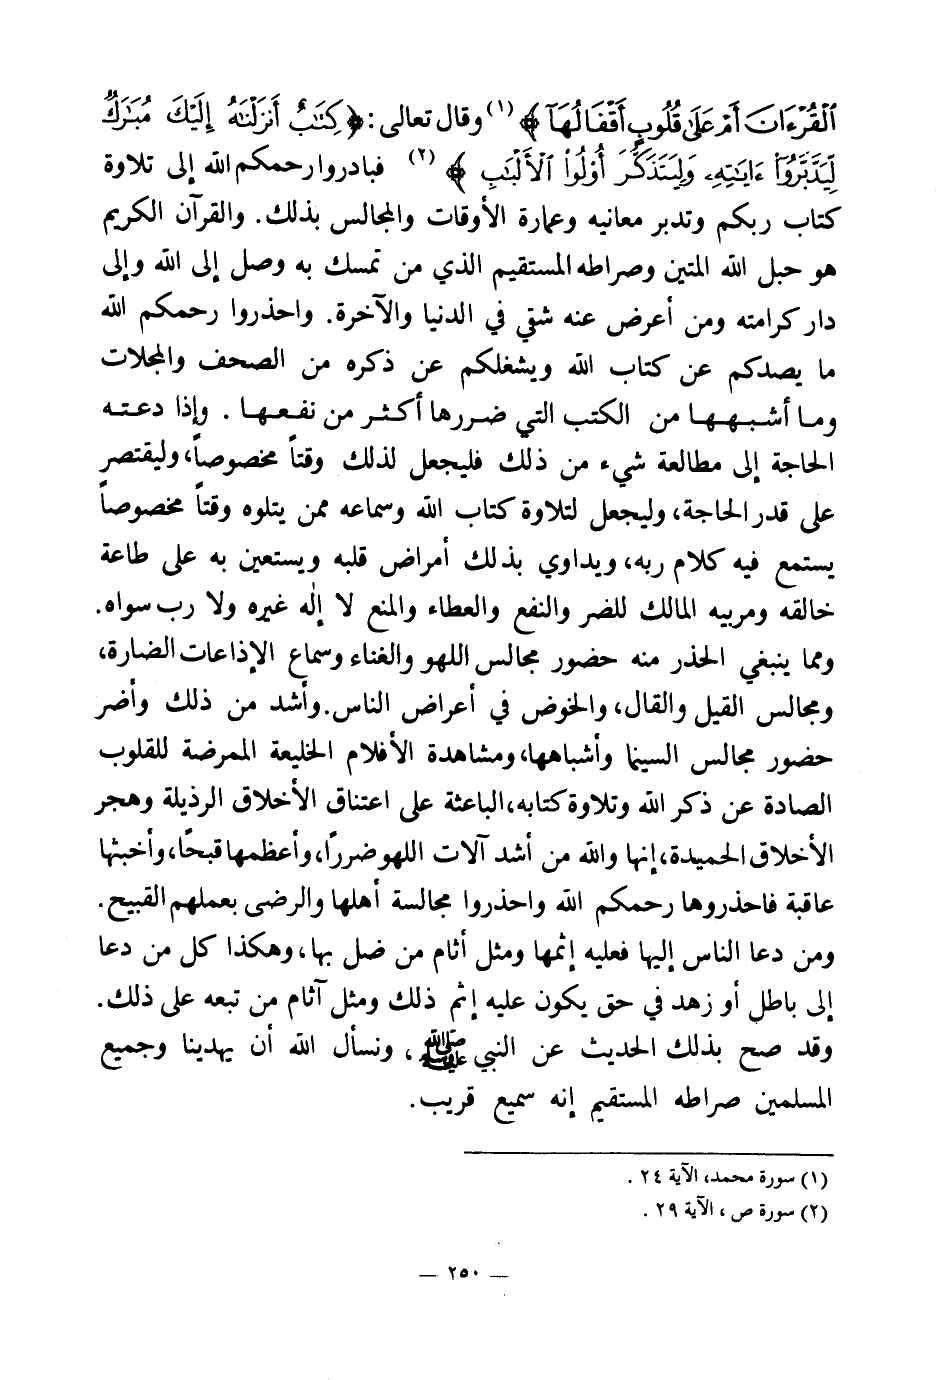 ٱلْقُرْءَانَ أَمْ عَلَىٰ قُلُوبٍ أَقْفَالُهَآ ﴾ (١) وقال تعالى : ﴿ كِتَٰبٌ أَنزَلْنَٰهُ إِلَيْكَ مُبَٰرَكٌ
لِّيَدَّبَّرُوٓا۟ ءَايَٰتِهِۦ وَلِيَتَذَكَّرَ أُو۟لُوا۟ ٱلْأَلْبَٰبِ ﴾ (٢) فبادروا رحمكم الله إلى تلاوة
كتاب ربكم وتدبر معانيه وعمارة الأوقات والمجالس بذلك. والقرآن الكريم
هو حبل الله المتين وصراطه المستقيم الذي من تمسك به وصل إلى الله وإلى
دار كرامته ومن أعرض عنه شقي في الدنيا والآخرة. واحذروا رحمكم الله
ما يصدكم عن كتاب الله ويشغلكم عن ذكره من الصحف والمجلات
وما أشبهها من الكتب التي ضررها أكثر من نفعها . وإذا دعته
الحاجة إلى مطالعة شيء من ذلك فليجعل لذلك وقتاً مخصوصاً، وليقتصر
على قدر الحاجة، وليجعل لتلاوة كتاب الله وسماعه ممن يتلوه وقتاً مخصوصاً
يستمع فيه كلام ربه، ويداوي بذلك أمراض قلبه ويستعين به على طاعة
خالقه ومربيه المالك للضر والنفع والعطاء والمنع لا إلٰه غيره ولا رب سواه.
ومما ينبغي الحذر منه حضور مجالس اللهو والغناء وسماع الإذاعات الضارة،
ومجالس القيل والقال، والخوض في أعراض الناس. وأشد من ذلك وأضر
حضور مجالس السينما وأشباهها، ومشاهدة الأفلام الخليعة الممرضة للقلوب
الصادة عن ذكر الله وتلاوة كتابه، الباعثة على اعتناق الأخلاق الرذيلة وهجر
الأخلاق الحميدة، إنها والله من أشد آلات اللهو ضررًا، وأعظمها قبحًا، وأخبثها
عاقبة فاحذروها رحمكم الله واحذروا مجالسة أهلها والرضى بعملهم القبيح.
ومن دعا الناس إليها فعليه إثمها ومثل أثام من ضل بها، وهكذا كل من دعا
إلى باطل أو زهد في حق يكون عليه إثم ذلك ومثل آثام من تبعه على ذلك.
وقد صح بذلك الحديث عن النبي ﷺ ، ونسأل الله أن يهدينا وجميع
المسلمين صراطه المستقيم إنه سميع قريب.
(١) سورة محمد، الآية ٢٤ .
(٢) سورة ص ، الآية ٢٩ .
— ٢٥٠ —